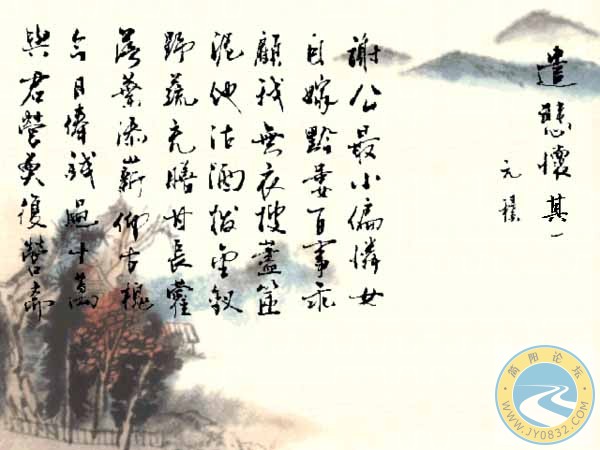 遣悲懷其一
元稹
謝公最小偏憐女
自嫁黔婁百事乖
顧我無衣搜藎篋
泥他沽酒拔金釵
野蔬充膳甘長藿
落葉添薪仰古槐
今日俸錢過十萬
與君營奠復營齋
简阳论坛
WWW.JY0832.COM